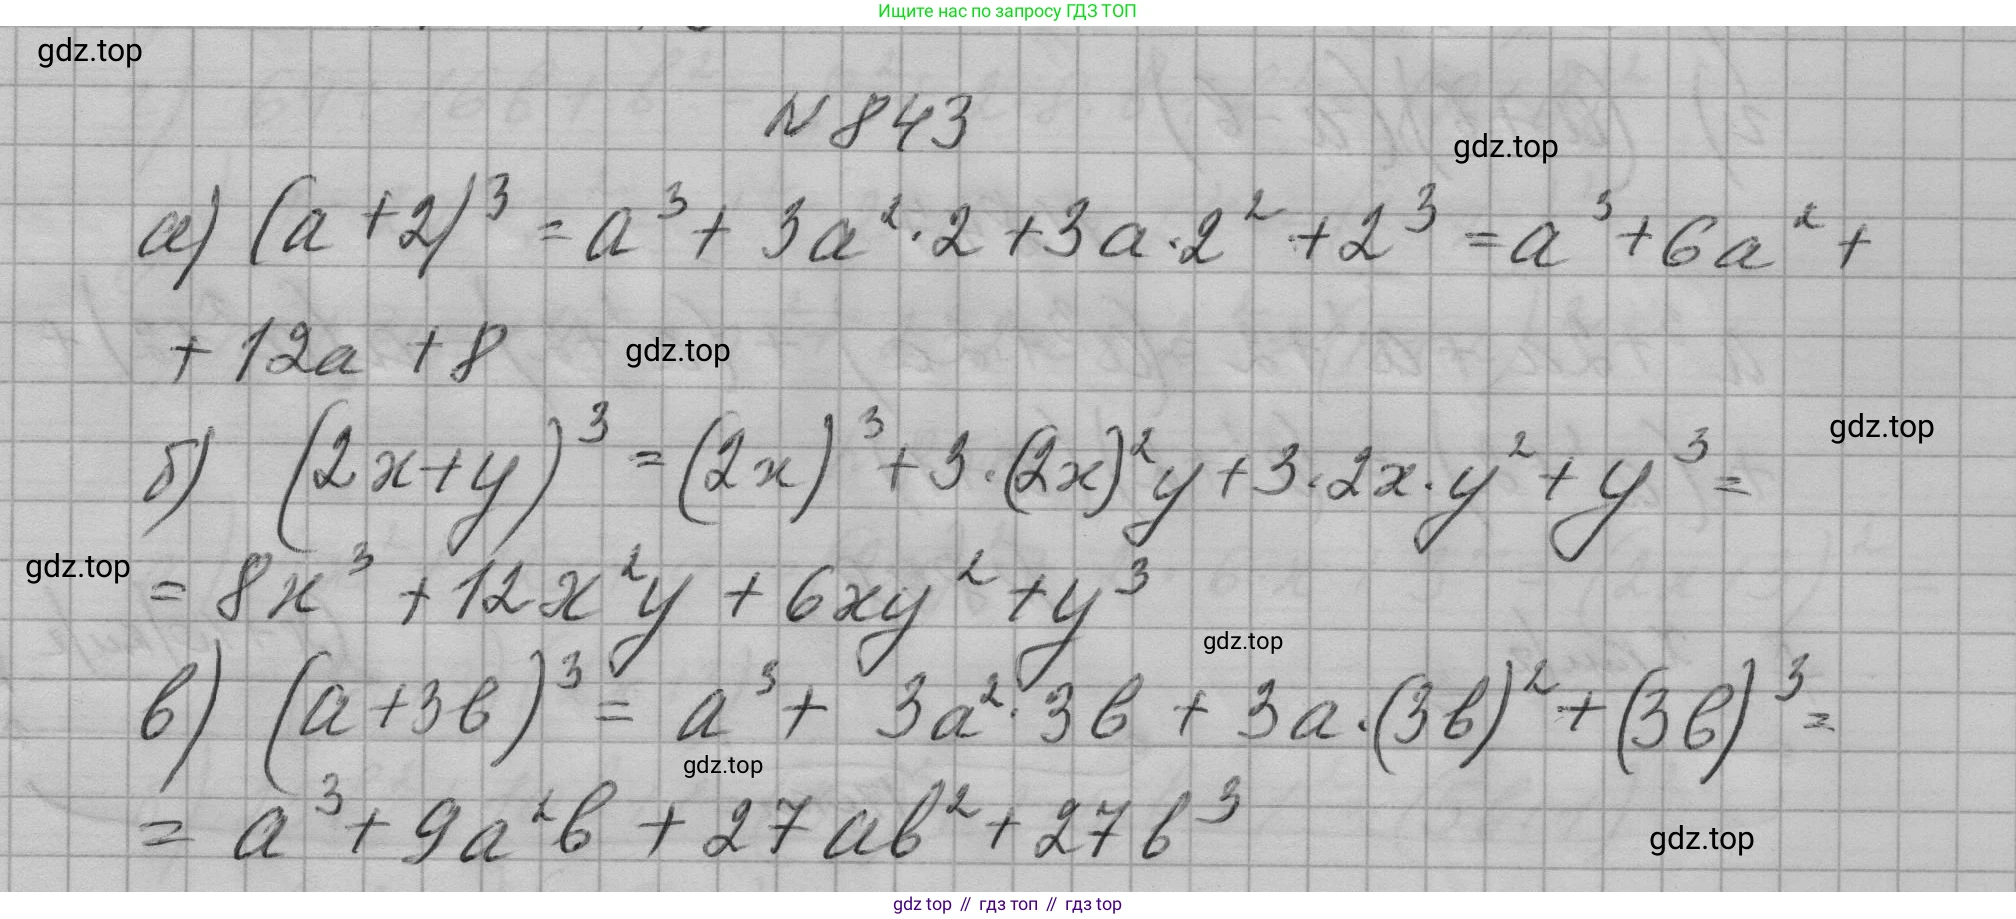 Ищите нас по запросу ГДЗ ТОП
gdz.top
N 843
gdz.top
а) (a + 2)³ = a³ + 3a² · 2 + 3a · 2² + 2³ = a³ + 6a² +
+ 12a + 8
gdz.top
gdz.top
б) (2x + y)³ = (2x)³ + 3 · (2x)² y + 3 · 2x · y² + y³ =
gdz.top
= 8x³ + 12x²y + 6xy² + y³
gdz.top
в) (a + 3b)³ = a³ + 3a² · 3b + 3a · (3b)² + (3b)³ =
gdz.top
= a³ + 9a²b + 27ab² + 27b³
gdz.top
gdz top // гдз топ // гдз top